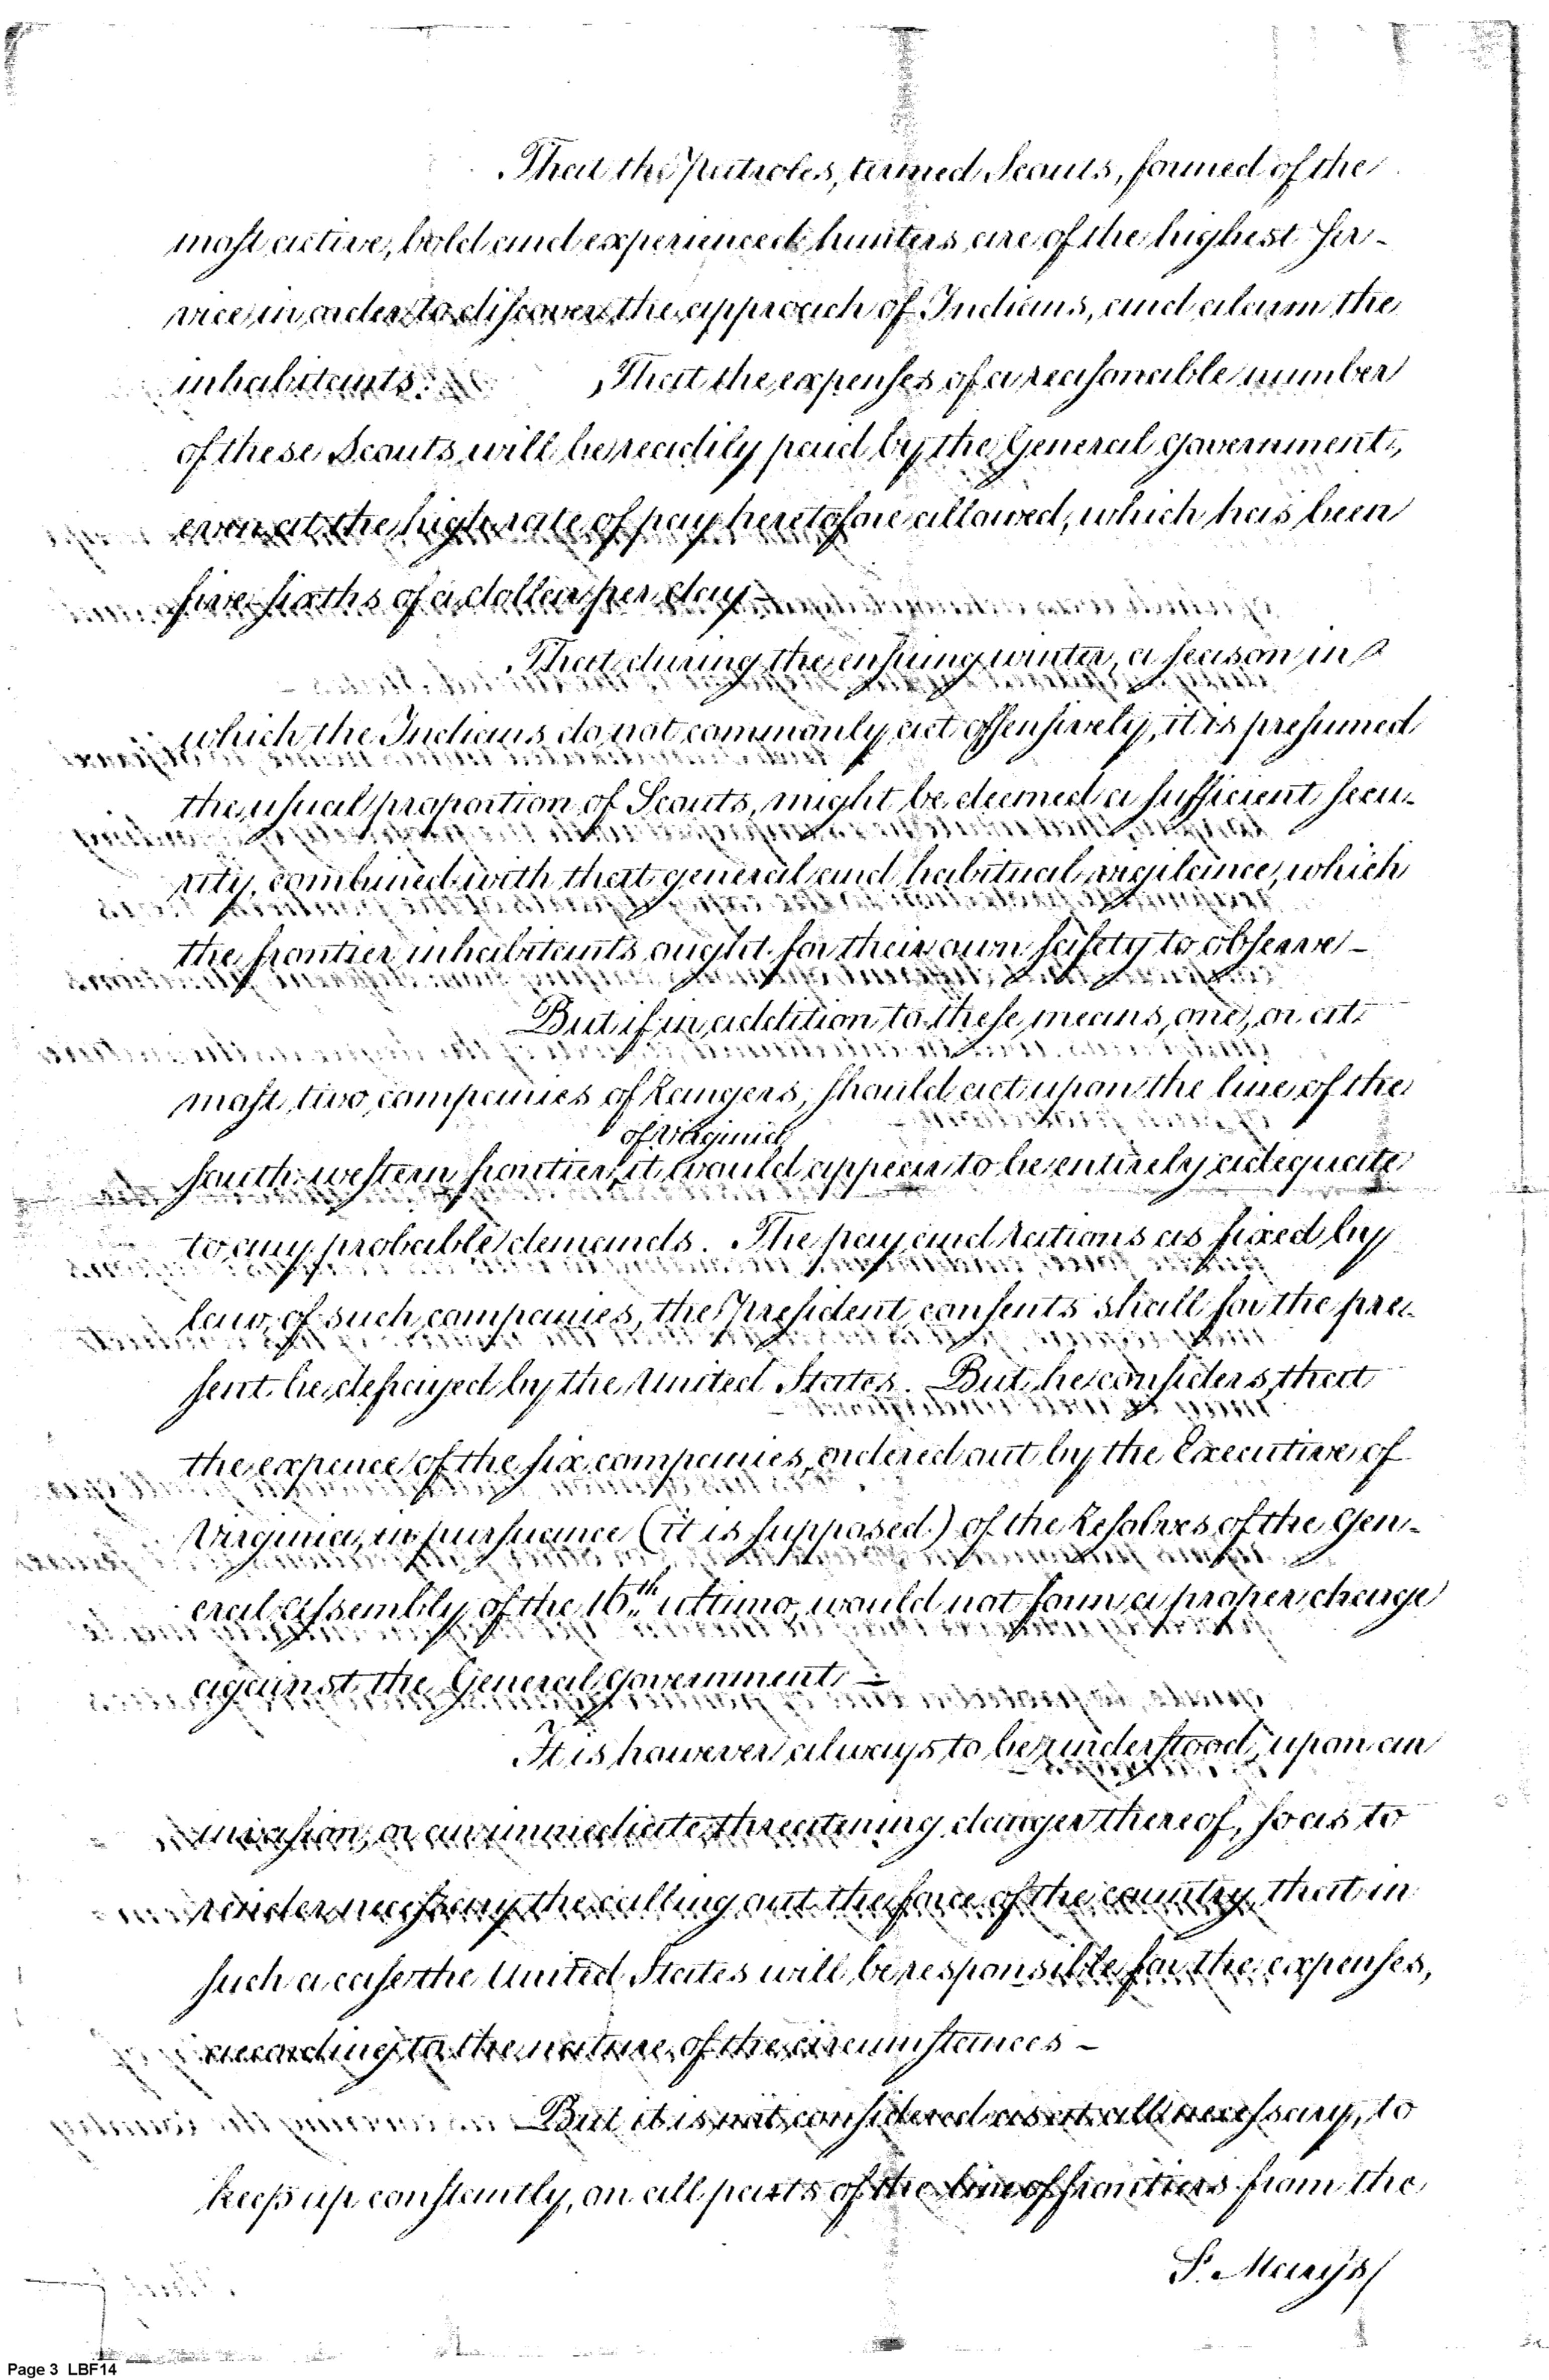 That the Patroles, termed Scouts, formed of the
most active, bold and experienced hunters are of the highest ser-
vice in order to discover the approach of Indians, and alarm the
inhabitants. That the expenses of a reasonable number
of these Scouts will be readily paid by the General Government,
even at the high rate of pay heretofore allowed, which has been
five sixths of a dollar per day—
That during the ensuing winter, a season in
which the Indians do not commonly act offensively, it is presumed
the usual proportion of Scouts, might be deemed a sufficient secu-
rity, combined with that general and habitual vigilance, which
the frontier inhabitants ought for their own safety to observe—
But if in addition to these means, one, or at
most, two companies of Rangers, should act upon the line of the
of Virginia
south western frontier, it would appear to be entirely adequate
to any probable demands. The pay and rations as fixed by
law, of such companies, the President consents shall for the pre-
sent be defrayed by the United States. But he considers that
the expence of the six companies, ordered out by the Executive of
Virginia, in pursuance (it is supposed) of the Resolves of the Gen-
eral assembly of the 16th ultimo, would not form a proper charge
against the General Government—
It is however always to be understood, upon an
invasion, or an immediate threatening danger thereof, so as to
render necessary the calling out the force of the country, that in
such a case the United States will be responsible for the expenses,
according to the nature of the circumstances—
But it is not considered as at all necessary, to
keep up constantly, on all parts of the line of frontiers from the
St. Mary's
Page 3 LBF14